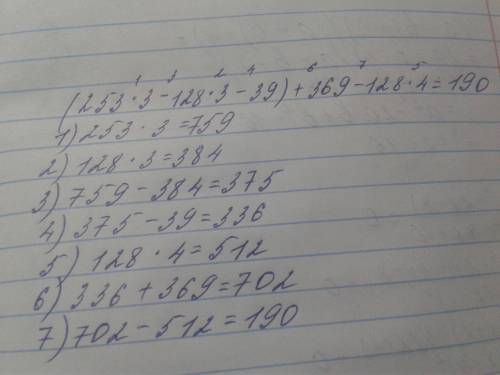 1 3 2 4 6 7 5
(253·3-128·3-39)+369-128·4=190
1) 253·3=759
2) 128·3=384
3) 759-384=375
4) 375-39=336
5) 128·4=512
6) 336+369=702
7) 702-512=190